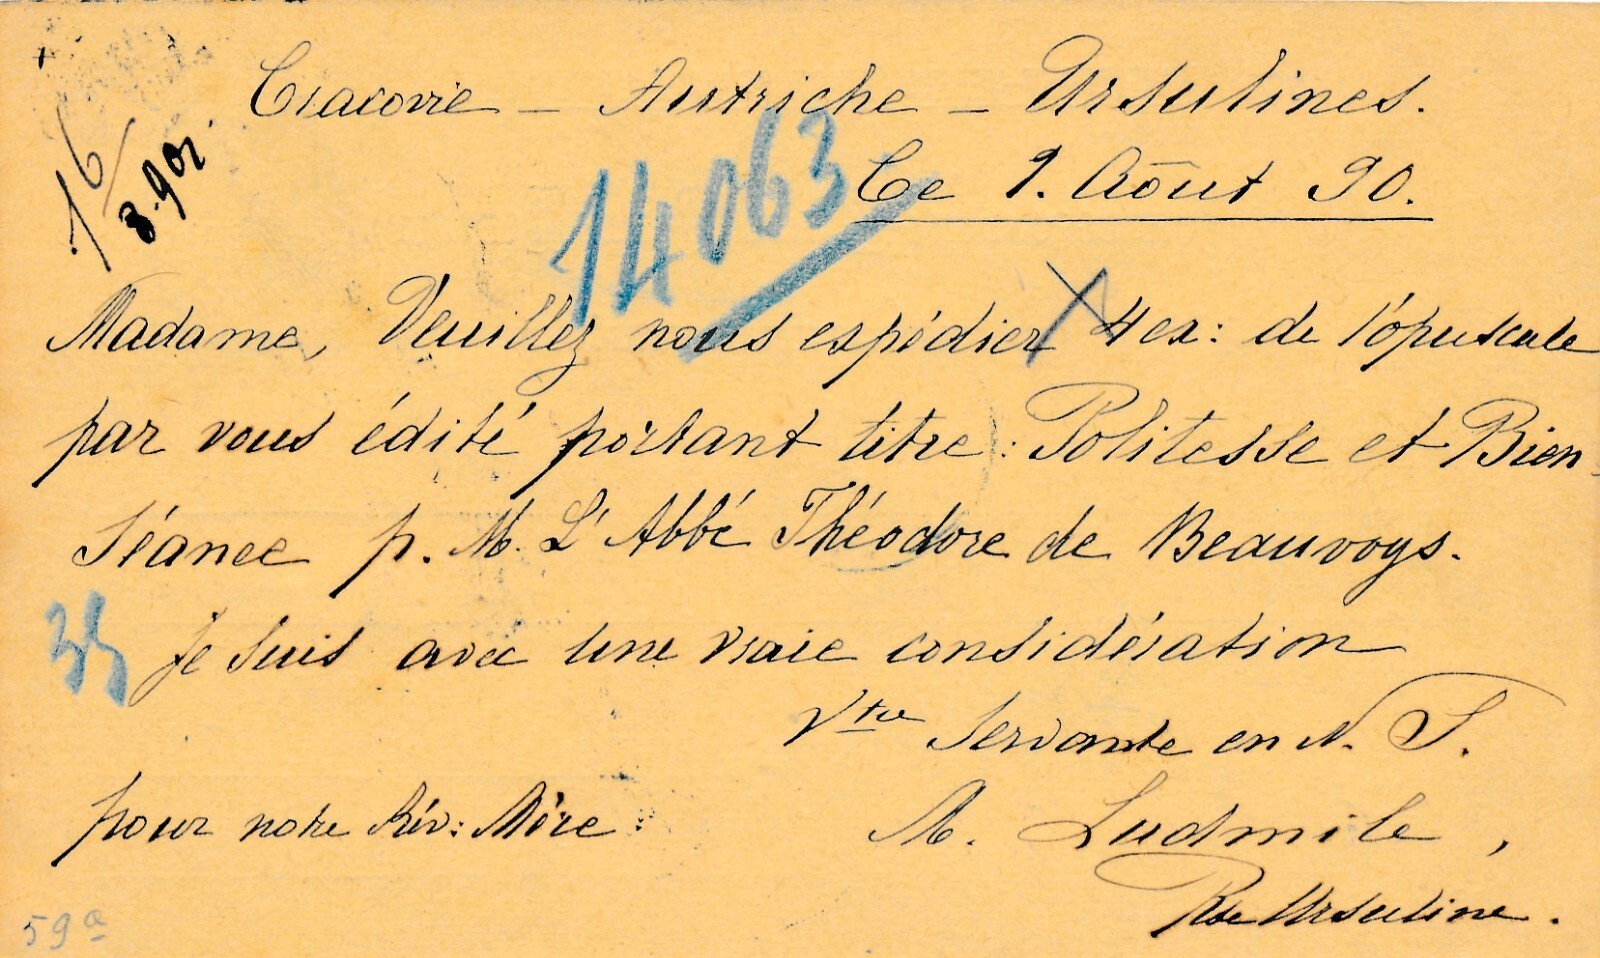 Cracovie – Autriche – Ursulines.
Ce 9. Août 90.
16/8.90
14063
Madame, Veuillez nous expédier 4 ex: de l'opuscule
par vous édité portant titre: Politesse et Bien-
séance p. M. L'Abbé Théodore de Beauvoys.
35
Je suis avec une vraie considération
Vtre Servante en N. S.
pour notre Rév: Mère:
M. Ludmile,
Rse Ursuline.
59a